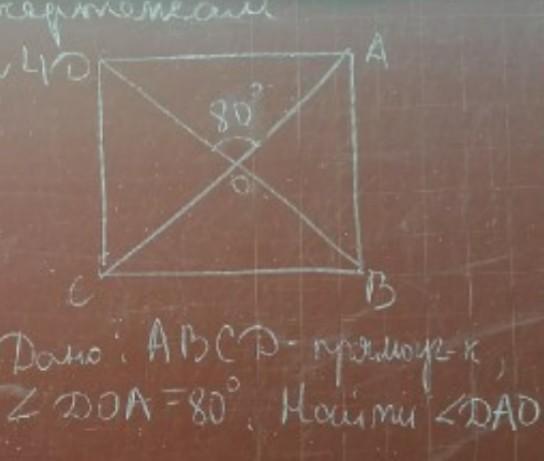 чертежам
4) D A
80°
O
C B
Дано: ABCD - прямоуг-к,
∠DOA = 80°. Найти ∠DAO